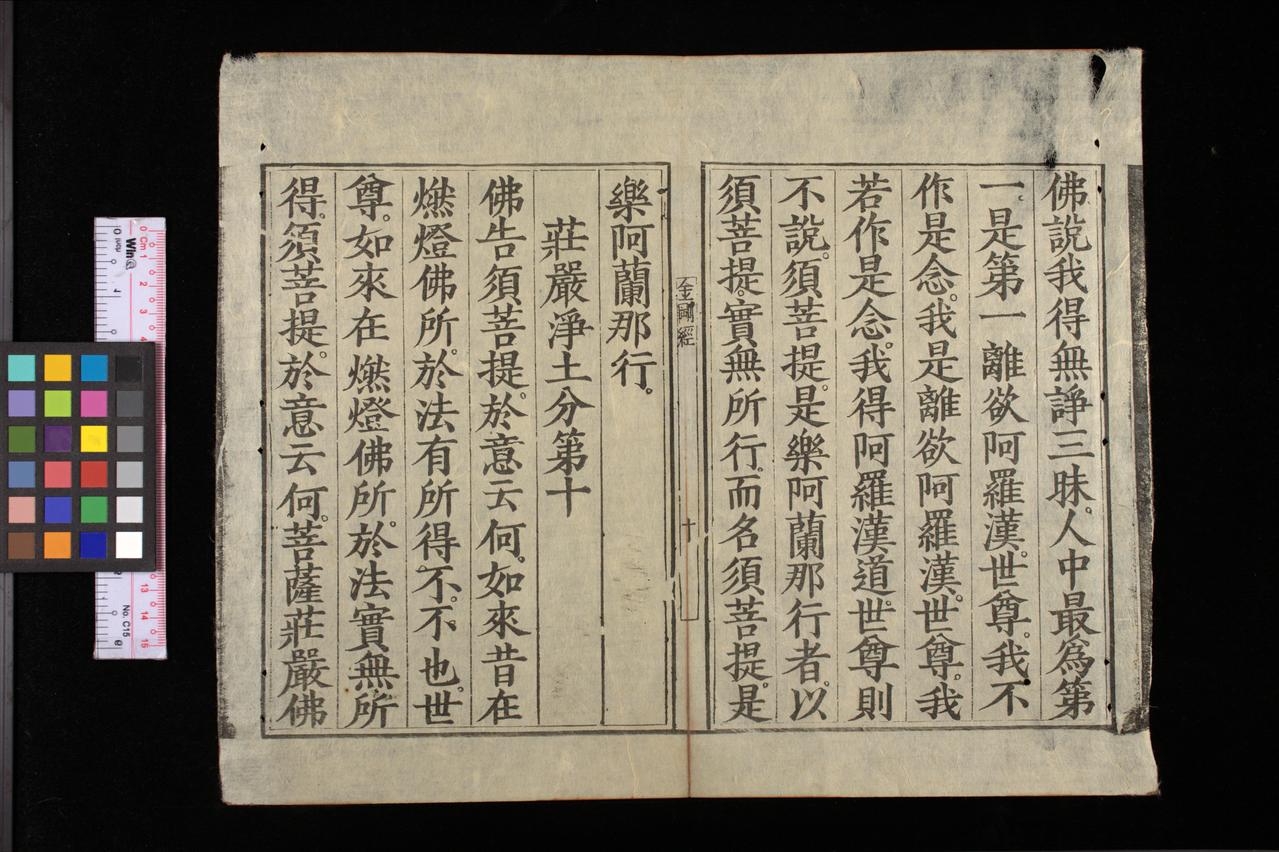 佛說我得無諍三昧。人中最為第
一。是第一離欲阿羅漢。世尊。我不
作是念。我是離欲阿羅漢。世尊。我
若作是念。我得阿羅漢道。世尊則
不說。須菩提。是樂阿蘭那行者。以
須菩提。實無所行。而名須菩提。是
金剛經
十
樂阿蘭那行。
莊嚴淨土分第十
佛告須菩提。於意云何。如來昔在
燃燈佛所。於法有所得不。不也。世
尊。如來在燃燈佛所。於法實無所
得。須菩提。於意云何。菩薩莊嚴佛